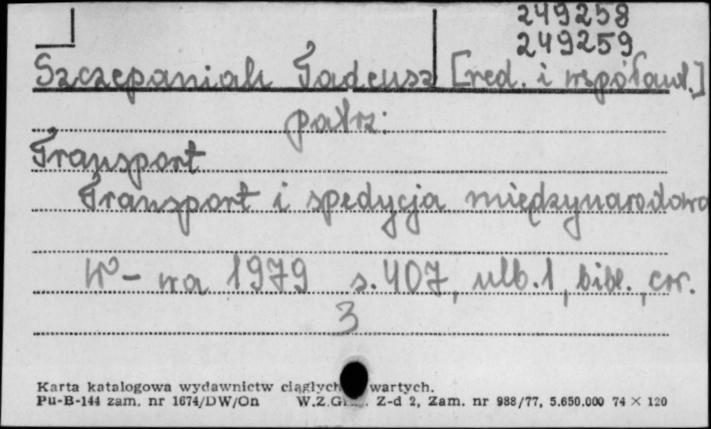 249258
249259
Szczepaniak Tadeusz [red. i współaut.]
patrz:
Transport
Transport i spedycja międzynarodowa
W-wa 1979 s. 407, nlb. 1, bibl.,
3
Karta katalogowa wydawnictw ciągłych wartych.
Pu-B-144 zam. nr 1674/DW/On W.Z.G Z-d 2, Zam. nr 988/77, 5.650.000 74 × 120